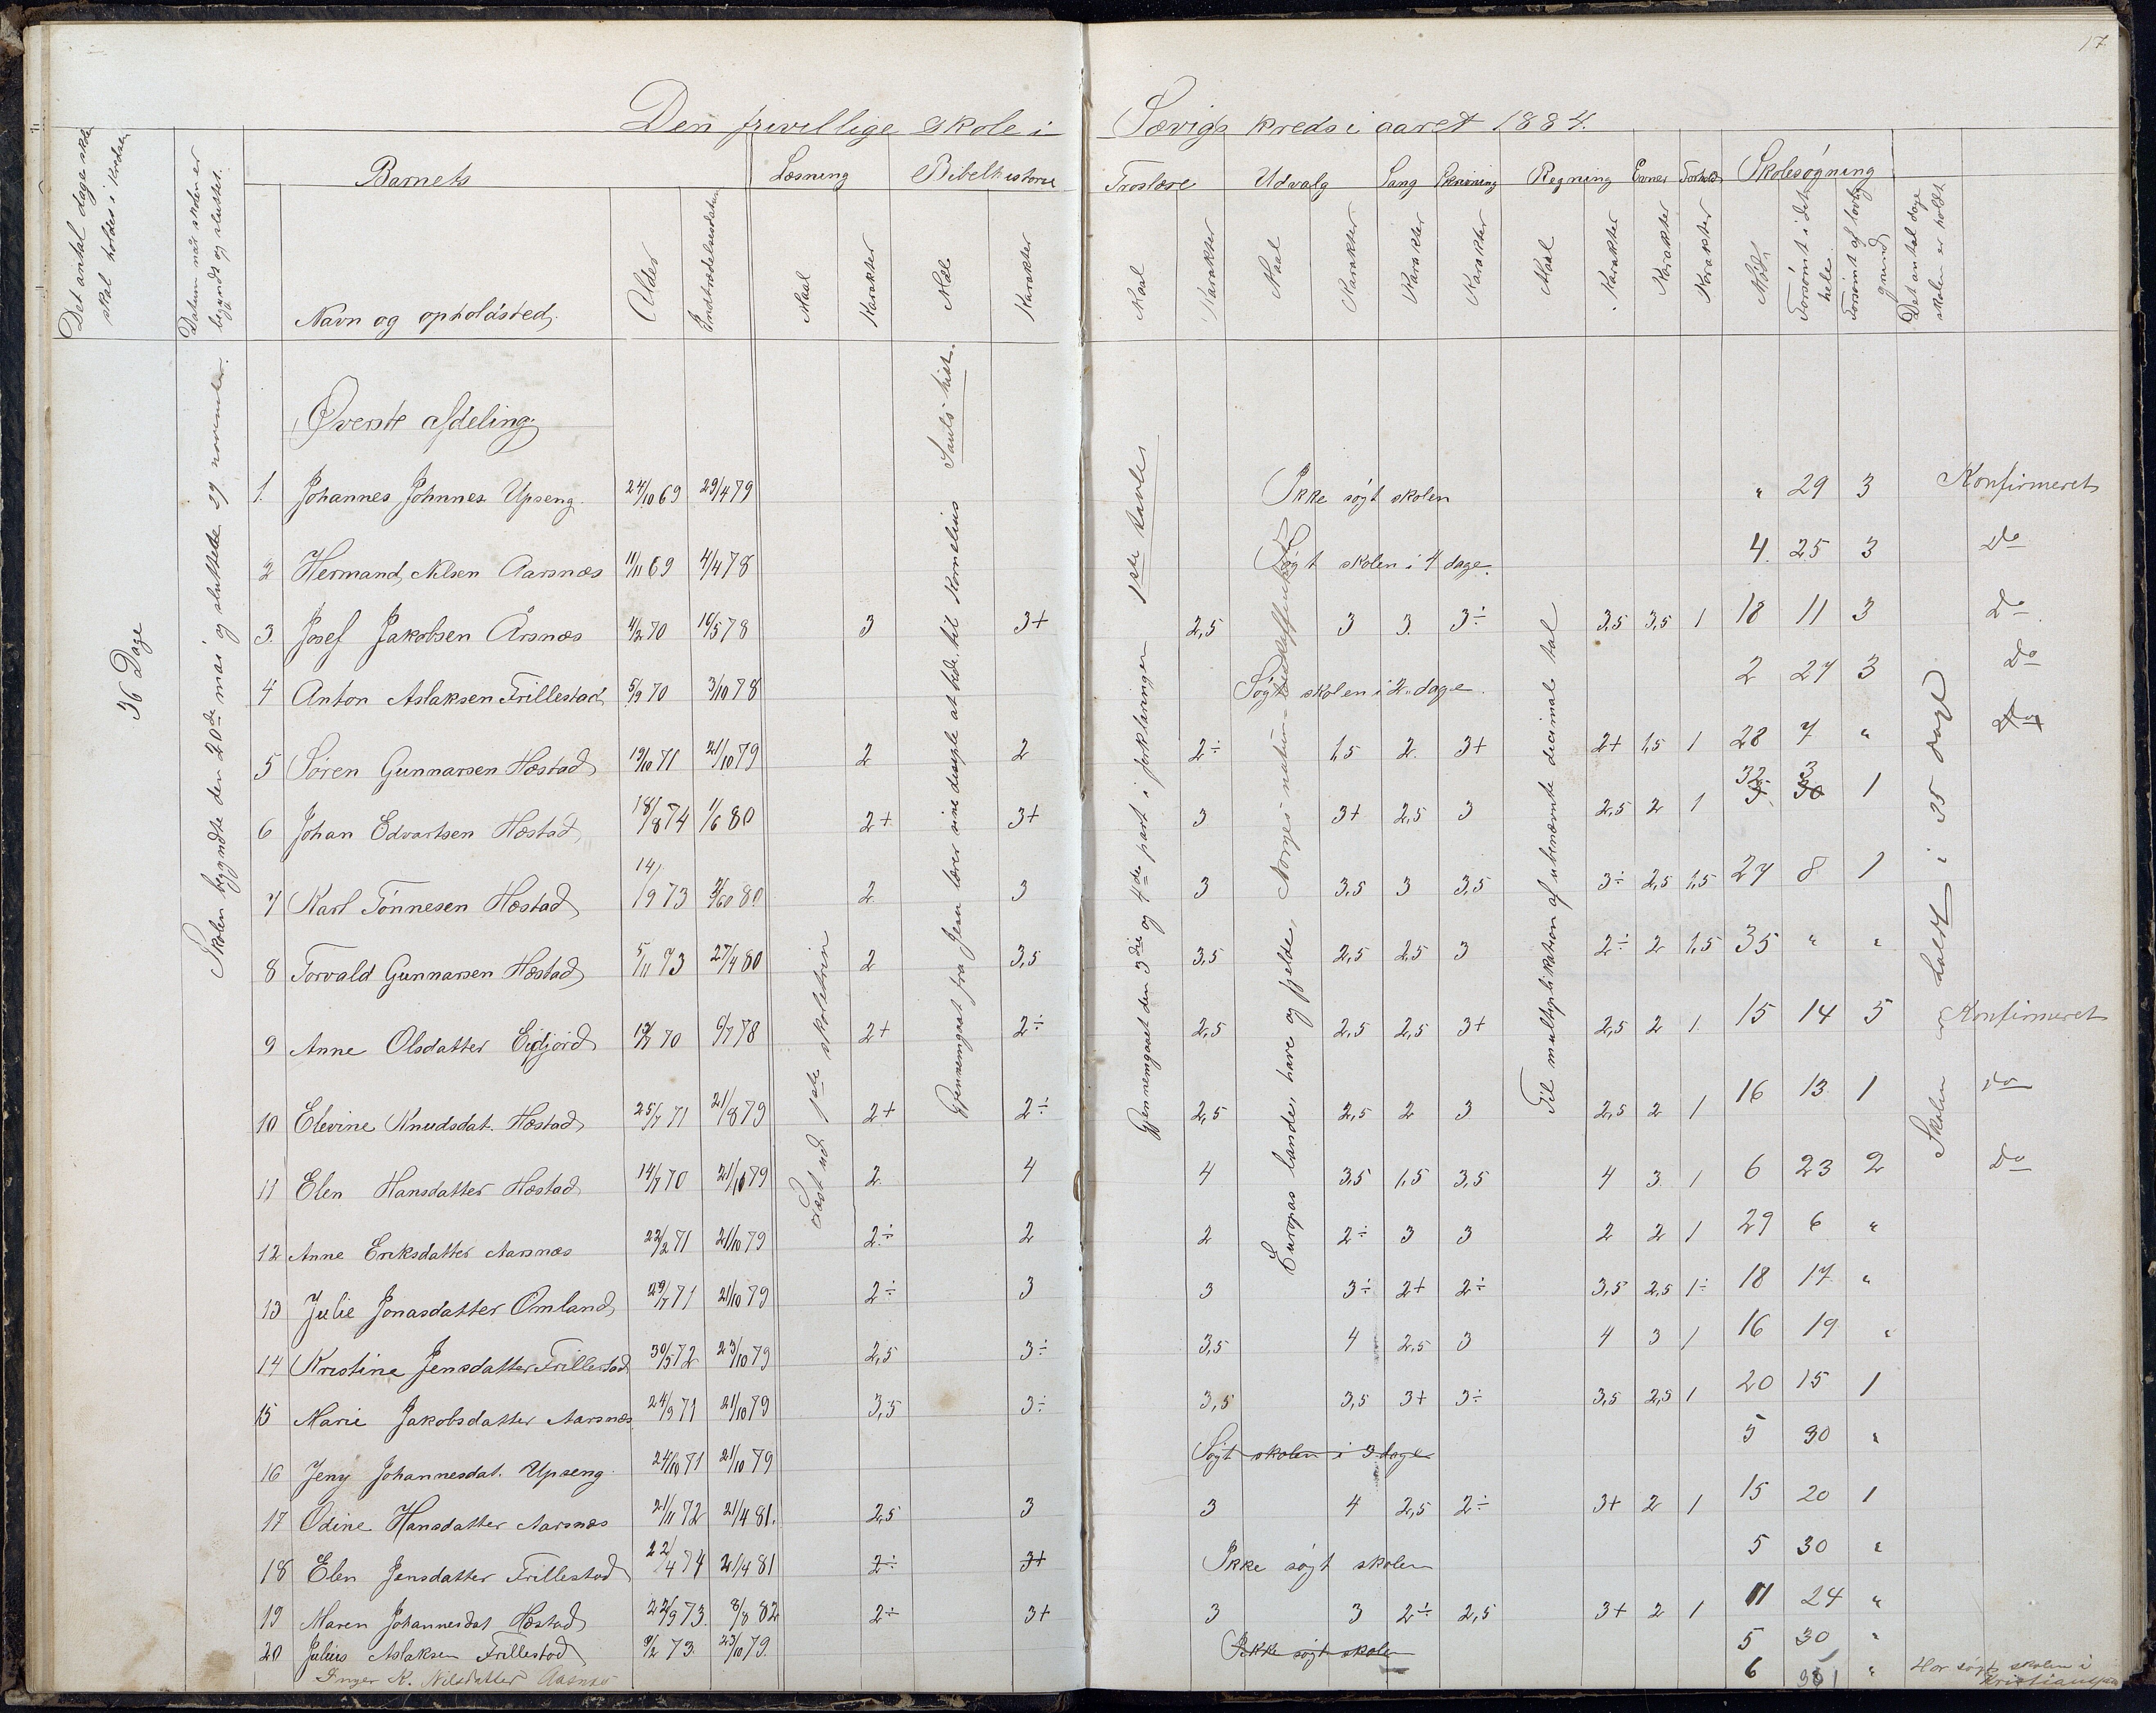 17
Den frivillige skole i Sævigs kreds i aaret 1884.
Det antal dage skole skal holdes i kredsen
Datum når skolen er begyndt og sluttet.
Barnets
Læsning
Bibelhistorie
Troslære
Udvalg
Sang
Skrivning
Regning
Evner
Forhold
Skolesøgning
Navn og opholdsted.
Alder
Indtrædelsesdatum
Maal
Karakter
Mål
Karakter
Maal
Karakter
Maal
Karakter
Karakter
Karakter
Maal
Karakter
Karakter
Karakter
Mødt
Forsømt i det hele
Forsømt af lovlig grund
Det antal dage skolen er holdt
36 Dage
Skolen begyndte den 20de mai og sluttede 29 november.
Læst ud 1ste skoletrin
Gjennemgaat fra Jesu lærer sine disciple at bede til Kornelius Sauls hist.
Gjennemgaaet den 3die og 4de part i forklaringen 1ste Kavles
Europas lande, have og fjelde, Norges
Til multiplikation af ubenævnte decimal tal
Skolen holdt i 35 dage
Øverste afdeling
1. Johannes Johnnes. Upseng 24/10 69 29/4 79 Ikke søgt skolen " 29 3 Konfirmeret
2 Hermand Nilsen Aarsnæs 11/11 69 4/4 78 Søgt skolen i 4 dage. 4. 25 3 Do
3. Josef Jakobsen Årsnæs 4/2 70 16/5 78 3 3+ 2,5 3 3. 3÷ 3,5 3,5 1 18 11 3 Do
4 Anton Aslaksen Frillestad 5/9 70 3/10 78 Søgt skolen i 2 dage. 2 27 3 Do
5 Søren Gunnarsen Hæstad 19/10 71 21/10 79 2 2 2÷ 1,5 2. 3+ 2+ 1,5 1 28 7 " Do
6 Johan Edvartsen Hæstad 18/8 74 1/6 80 2+ 3+ 3 3+ 2,5 3 2,5 2 1 32 3 1
7 Karl Tønnesen Hæstad 14/9 73 80 2 3 3 3,5 3 3,5 3÷ 2,5 1,5 27 8 1
8 Torvald Gunnarsen Hæstad 5/11 73 27/4 80 2 3,5 3,5 2,5 2,5 3 2÷ 2 1,5 35 " "
9 Anne Olsdatter Eidjord 70 6/7 78 2+ 2÷ 2,5 2,5 2,5 3+ 2,5 2 1. 15 14 5 Konfirmeret
10 Elevine Knudsdat. Hæstad 25/7 71 21/8 79 2+ 2÷ 2,5 2,5 2 3 2,5 2 1 16 13 1 do
11 Elen Hansdatter Hæstad 14/7 70 21/10 79 2. 4 4 3,5 1,5 3,5 4 3. 1 6 23 2 Do
12 Anne Eriksdatter Aarsnæs 22/2 71 21/10 79 2÷ 2 2 2÷ 3 3 2 2 1 29 6 "
13 Julie Jonasdatter Omland 29/7 71 21/10 79 2÷ 3 3 3÷ 2+ 2÷ 3,5 2,5 1÷ 18 17 "
14 Kristine Jensdatter Frillestad 30/5 72 23/10 79 2,5 3÷ 3,5 4 2,5 3 4 3 1 16 19 "
15 Marie Jakobsdatter Aarsnæs 24/9 71 21/10 79 3,5 3÷ 3,5 3,5 3+ 3÷ 3,5 2,5 1 20 15 1
16 Jeny Johannesdat. Upseng. 24/10 71 21/10 79 Søgt skolen i 3 dage 5 30 "
17 Odine Hansdatter Aarsnæs 21/11 72 21/4 81. 2,5 3 3 4 2,5 2÷ 3+ 2 1 15 20 1
18 Elen Jensdatter Frillestad 22/4 74 21/4 81 2÷ 3+ Ikke søgt skolen 5 30 "
19 Maren Johannesdat Hæstad 22/9 73. 8/8 82 2÷ 3+ 3 3 2÷ 2,5 3+ 2 1 11 24 "
20 Julius Aslaksen Frillestad 9/2 73. 23/10 79. Ikke søgt skolen 5 30 "
Inger K. Nilsdatter Aasnæs 6 "
Har søgt skolen i Kristianssand